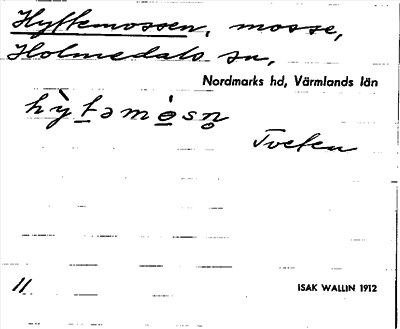 Hyttemossen, mosse,
Holmedals sn,
Nordmarks hd, Värmlands län
hỳtəmósn̥
Tveten
11
ISAK WALLIN 1912